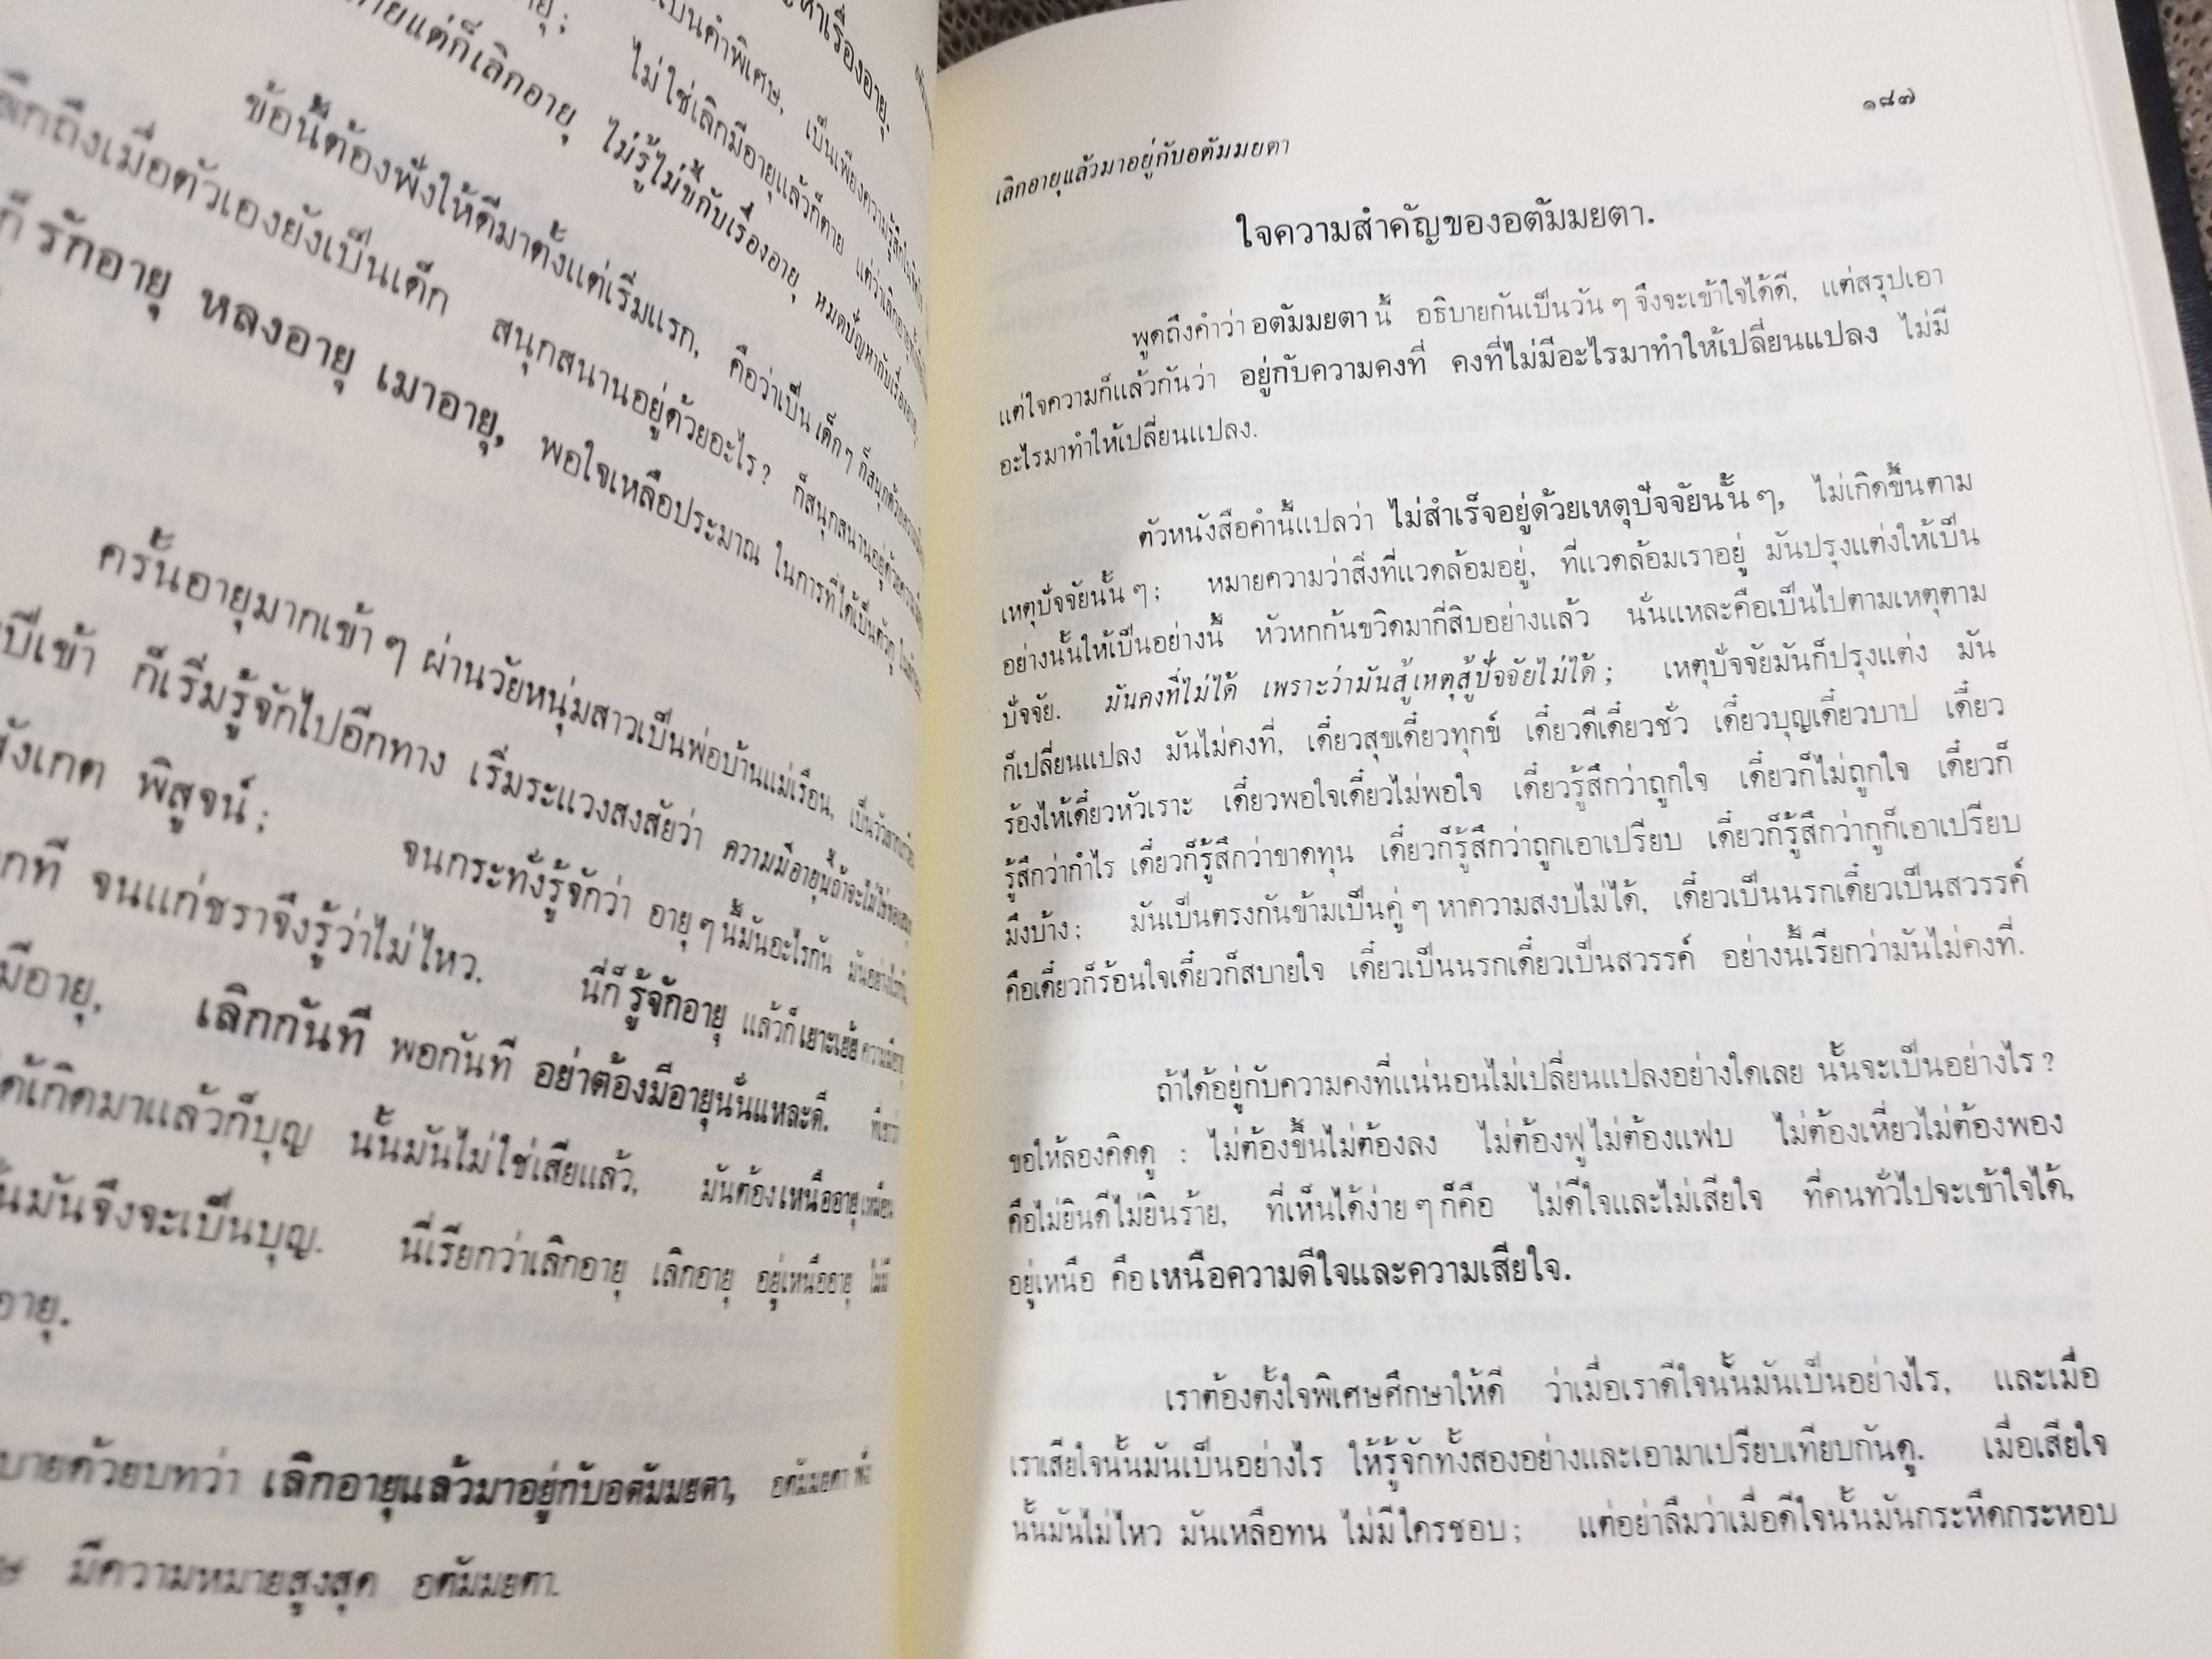 หาเรื่องอายุ.
เป็นคำพิเศษ, เป็นเพียงความรู้สึกในจิตใจ
อายุ; ไม่ใช่เลิกมีอายุแล้วก็ตาย แต่ว่าเลิกอายุ
ตายแต่ก็เลิกอายุ ไม่รู้ไม่ชี้กับเรื่องอายุ หมดปัญหากับเรื่องอายุ.
ข้อนี้ต้องฟังให้ดีมาตั้งแต่เริ่มแรก, คือว่าเป็น เด็ก ๆ ก็สนุกด้วยความ
ลึกถึงเมื่อตัวเองยังเป็นเด็ก สนุกสนานอยู่ด้วยอะไร? ก็สนุกสนานอยู่ด้วยความ
ก็ รักอายุ หลงอายุ เมาอายุ, พอใจเหลือประมาณ ในการที่ได้เป็นตัวกู
ครั้นอายุมากเข้า ๆ ผ่านวัยหนุ่มสาวเป็นพ่อบ้านแม่เรือน,
ปีเข้า ก็เริ่มรู้จักไปอีกทาง เริ่มระแวงสงสัยว่า ความมีอายุนี้ถ้าจะไม่ใช่ของ
สังเกต พิสูจน์; จนกระทั่งรู้จักว่า อายุ ๆ นี้มันอะไรกัน มันอย่างไรกัน
กที จนแก่ชราจึงรู้ว่าไม่ไหว. นี่ก็ รู้จักอายุ แล้วก็ เยาะเย้ย ความมีอายุ
มีอายุ, เลิกกันที พอกันที อย่าต้องมีอายุนั่นแหละดี. ที่เขาว่า
ได้เกิดมาแล้วก็บุญ นั้นมันไม่ใช่เสียแล้ว, มันต้อง เหนืออายุ เหนือ
นั้นมันจึงจะเป็นบุญ. นี่เรียกว่าเลิกอายุ เลิกอายุ อยู่เหนืออายุ ไม่มี
อายุ.
บายด้วยบทว่า เลิกอายุแล้วมาอยู่กับอตัมมยตา, อตัมมยตา ฟัง
มีความหมายสูงสุด อตัมมยตา.
๑๘๗
เลิกอายุแล้วมาอยู่กับอตัมมยตา
ใจความสำคัญของอตัมมยตา.
พูดถึงคำว่า อตัมมยตา นี้ อธิบายกันเป็นวัน ๆ จึงจะเข้าใจได้ดี, แต่สรุปเอา
แต่ใจความก็แล้วกันว่า อยู่กับความคงที่ คงที่ไม่มีอะไรมาทำให้เปลี่ยนแปลง ไม่มี
อะไรมาทำให้เปลี่ยนแปลง.
ตัวหนังสือคำนี้แปลว่า ไม่สำเร็จอยู่ด้วยเหตุปัจจัยนั้น ๆ, ไม่เกิดขึ้นตาม
เหตุปัจจัยนั้น ๆ; หมายความว่าสิ่งที่แวดล้อมอยู่, ที่แวดล้อมเราอยู่ มันปรุงแต่งให้เป็น
อย่างนั้นให้เป็นอย่างนี้ หัวหกก้นขวิดมากี่สิบอย่างแล้ว นั่นแหละคือเป็นไปตามเหตุตาม
ปัจจัย. มันคงที่ไม่ได้ เพราะว่ามันสู้เหตุสู้ปัจจัยไม่ได้; เหตุปัจจัยมันก็ปรุงแต่ง มัน
ก็เปลี่ยนแปลง มันไม่คงที่, เดี๋ยวสุขเดี๋ยวทุกข์ เดี๋ยวดีเดี๋ยวชั่ว เดี๋ยวบุญเดี๋ยวบาป เดี๋ยว
ร้องไห้เดี๋ยวหัวเราะ เดี๋ยวพอใจเดี๋ยวไม่พอใจ เดี๋ยวรู้สึกว่าถูกใจ เดี๋ยวก็ไม่ถูกใจ เดี๋ยวก็
รู้สึกว่ากำไร เดี๋ยวก็รู้สึกว่าขาดทุน เดี๋ยวก็รู้สึกว่าถูกเอาเปรียบ เดี๋ยวก็รู้สึกว่ากูก็เอาเปรียบ
มึงบ้าง; มันเป็นตรงกันข้ามเป็นคู่ ๆ หาความสงบไม่ได้, เดี๋ยวเป็นนรกเดี๋ยวเป็นสวรรค์
คือเดี๋ยวก็ร้อนใจเดี๋ยวก็สบายใจ เดี๋ยวเป็นนรกเดี๋ยวเป็นสวรรค์ อย่างนี้เรียกว่ามันไม่คงที่.
ถ้าได้อยู่กับความคงที่แน่นอนไม่เปลี่ยนแปลงอย่างใดเลย นั้นจะเป็นอย่างไร?
ขอให้ลองคิดดู : ไม่ต้องขึ้นไม่ต้องลง ไม่ต้องฟูไม่ต้องแฟบ ไม่ต้องเหี่ยวไม่ต้องพอง
คือไม่ยินดีไม่ยินร้าย, ที่เห็นได้ง่าย ๆ ก็คือ ไม่ดีใจและไม่เสียใจ ที่คนทั่วไปจะเข้าใจได้,
อยู่เหนือ คือ เหนือความดีใจและความเสียใจ.
เราต้องตั้งใจพิเศษศึกษาให้ดี ว่าเมื่อเราดีใจนั้นมันเป็นอย่างไร, และเมื่อ
เราเสียใจนั้นมันเป็นอย่างไร ให้รู้จักทั้งสองอย่างและเอามาเปรียบเทียบกันดู. เมื่อเสียใจ
นั้นมันไม่ไหว มันเหลือทน ไม่มีใครชอบ; แต่อย่าลืมว่าเมื่อดีใจนั้นมันกระหืดกระหอบ